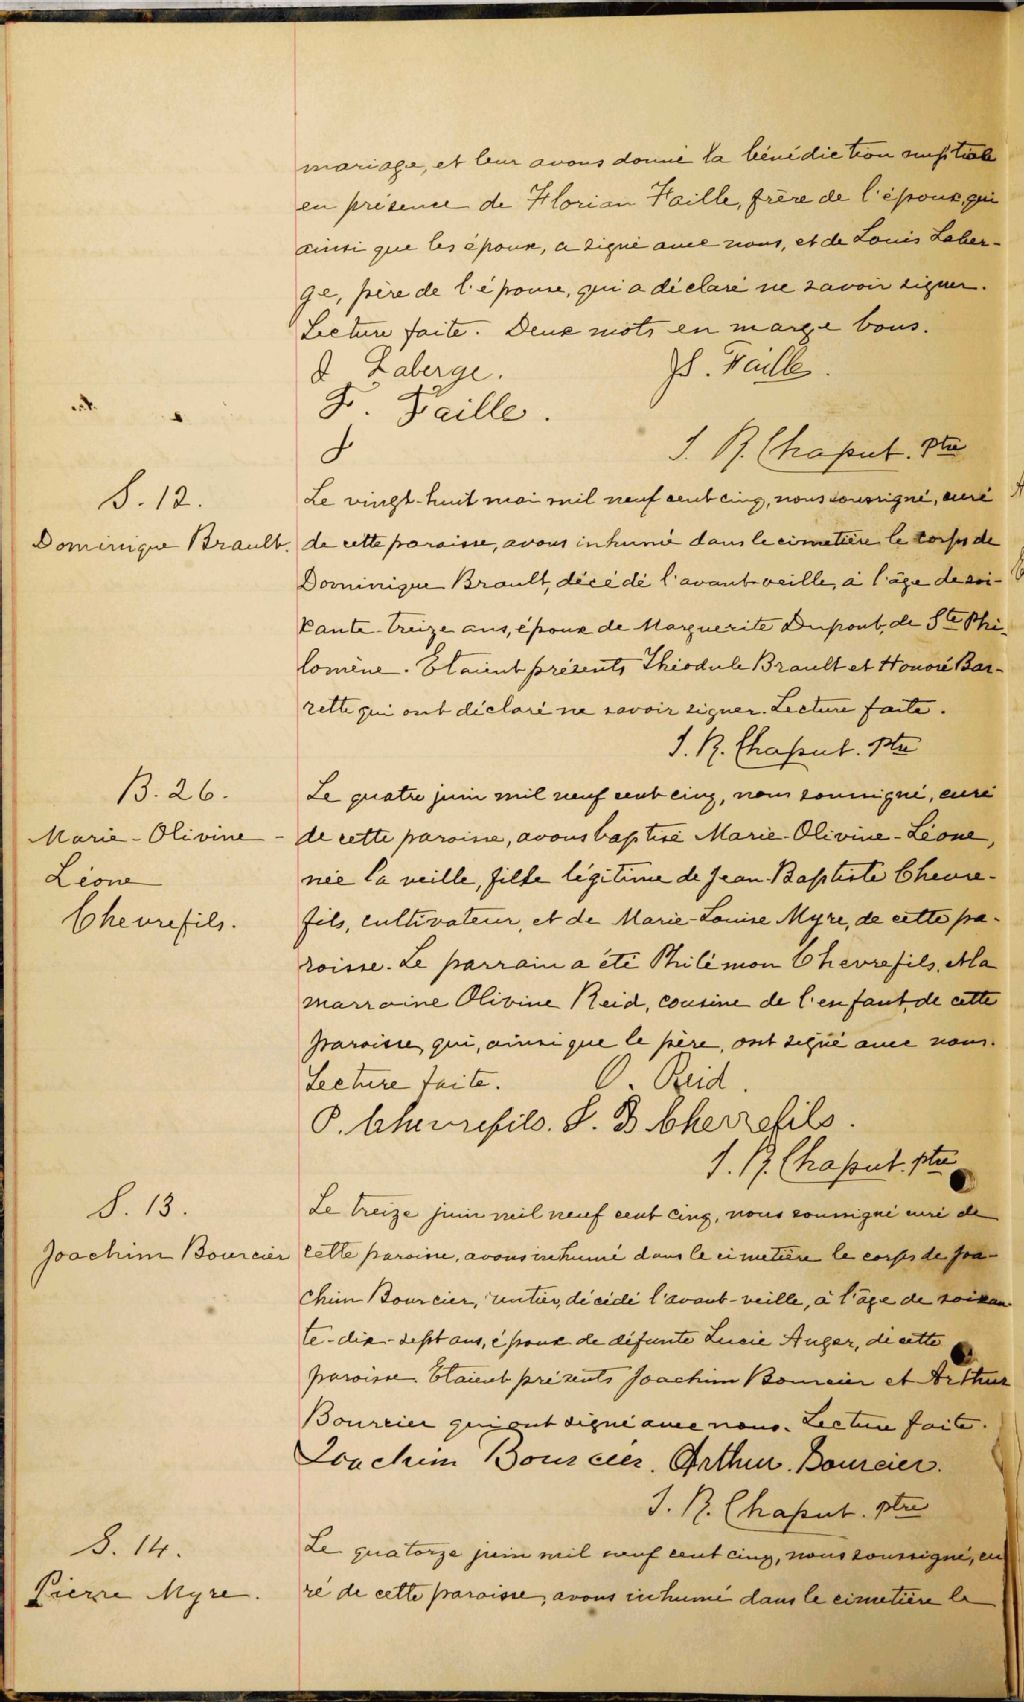 mariage, et leur avons donné la bénédiction nuptiale
en présence de Florian Faille, frère de l'époux, qui
ainsi que les époux, a signé avec nous, et de Louis Laber-
ge, père de l'épouse, qui a déclaré ne savoir signer.
Lecture faite. Deux mots en marge bons.
Laberge. JS. Faille.
F. Faille.
J. R. Chaput. Ptre
S. 12.
Dominique Brault.
Le vingt-huit mai mil neuf cent cinq, nous soussigné, curé
de cette paroisse, avons inhumé dans le cimetière le corps de
Dominique Brault, décédé l'avant-veille, à l'âge de soi-
xante-treize ans, époux de Marguerite Dupont, de Ste Phi-
lomène. Etaient présents Théodule Brault et Honoré Bar-
rette qui ont déclaré ne savoir signer. Lecture faite.
J. R. Chaput. Ptre
B. 26.
Marie-Olivine-
Léone
Chevrefils.
Le quatre juin mil neuf cent cinq, nous soussigné, curé
de cette paroisse, avons baptisé Marie-Olivine-Léone,
née la veille, fille légitime de Jean-Baptiste Chevre-
fils, cultivateur, et de Marie-Louise Myre, de cette pa-
roisse. Le parrain a été Philémon Chevrefils, et la
marraine Olivine Reid, cousine de l'enfant, de cette
paroisse, qui, ainsi que le père, ont signé avec nous.
Lecture faite. O. Reid.
P. Chevrefils. J. B Chevrefils.
J. R. Chaput. ptre
S. 13.
Joachim Bourcier
Le treize juin mil neuf cent cinq, nous soussigné curé de
cette paroisse, avons inhumé dans le cimetière le corps de Joa-
chim Bourcier, rentier, décédé l'avant-veille, à l'âge de soixan
te-dix-sept ans, époux de défunte Lucie Auger, de cette
paroisse. Etaient présents Joachim Bourcier et Arthur
Bourcier qui ont signé avec nous. Lecture faite.
Joachim Bourcier. Arthur. Bourcier.
J. R. Chaput. ptre
S. 14.
Pierre Myre.
Le quatorze juin mil neuf cent cinq, nous soussigné, cu
ré de cette paroisse, avons inhumé dans le cimetière le